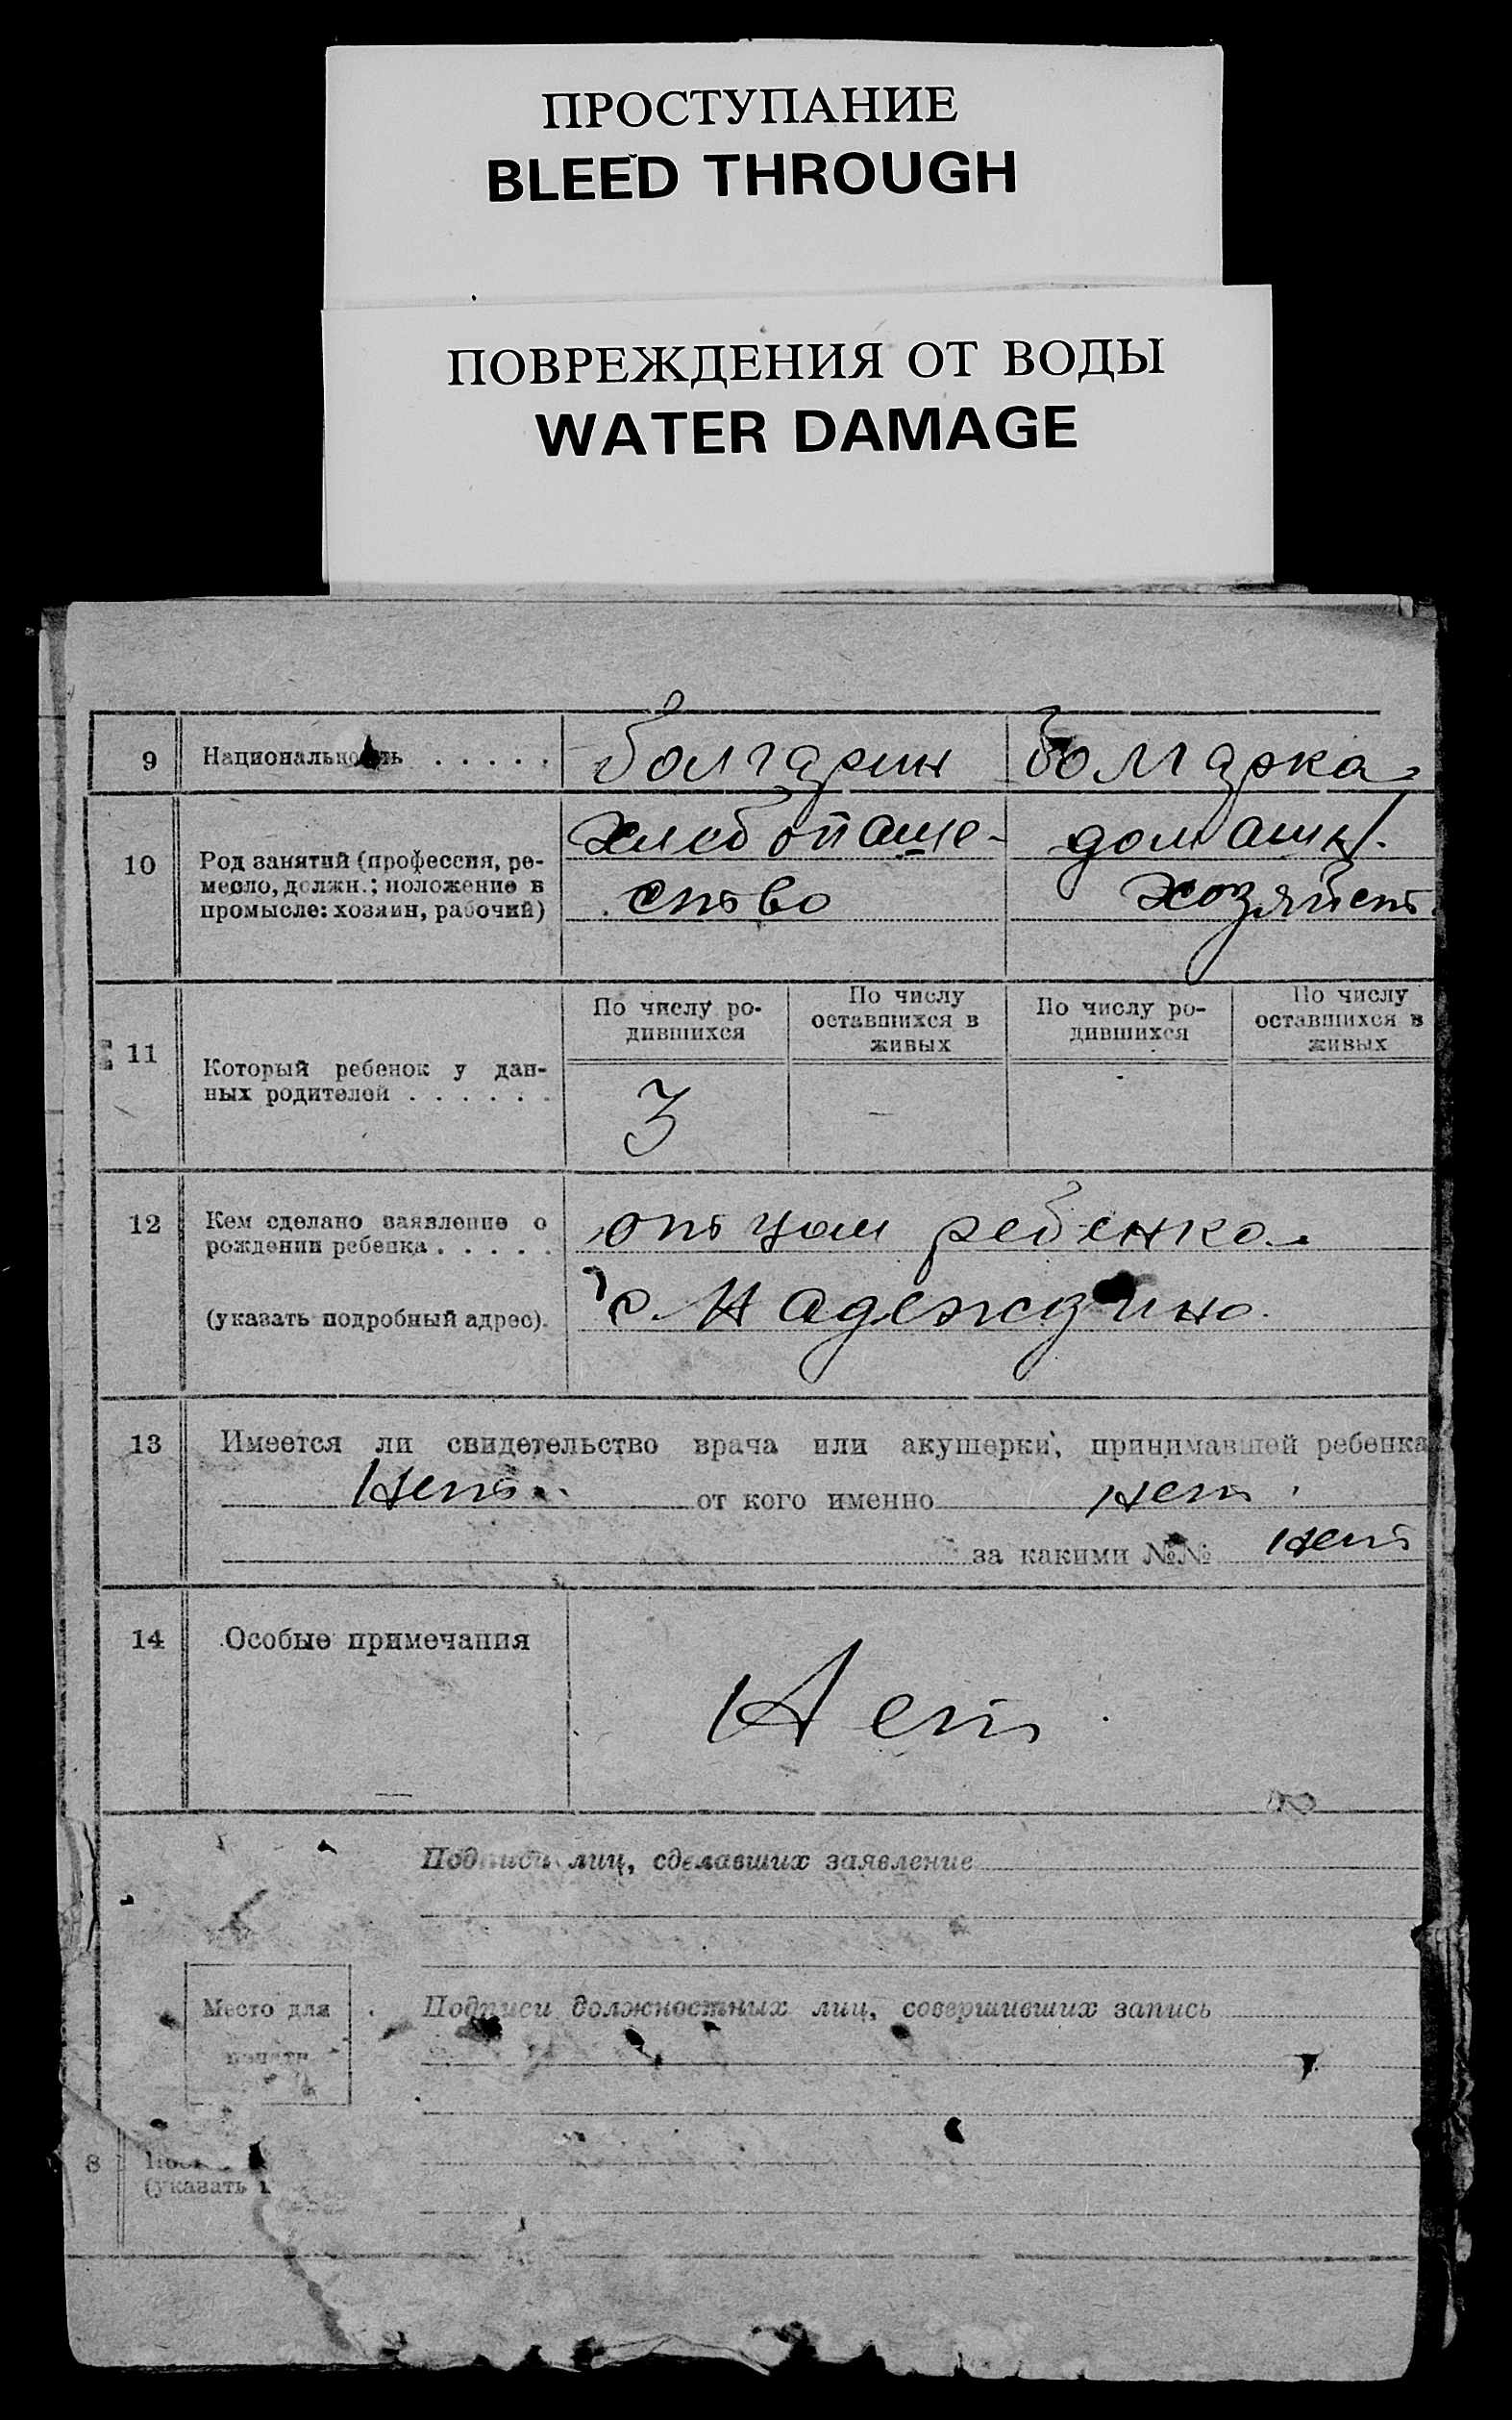 ПРОСТУПАНИЕ
BLEED THROUGH
ПОВРЕЖДЕНИЯ ОТ ВОДЫ
WATER DAMAGE
9 Национальность . . . . . болгарин болгарка
10 Род занятий (профессия, ре-
месло, должн.; положение в
промысле: хозяин, рабочий)
хлебопаше-
ство
домашн.
хозяйст.
11 Который ребенок у дан-
ных родителей . . . . . .
По числу ро-
дившихся
По числу
оставшихся в
живых
По числу ро-
дившихся
По числу
оставшихся в
живых
3 —
12 Кем сделано заявление о
рождении ребенка . . . . .
(указать подробный адрес).
отцом ребенка
с. Надеждино.
13 Имеется ли свидетельство врача или акушерки, принимавшей ребенка
Нет от кого именно нет.
за какими №№ нет
14 Особые примечания
Нет.
Подписи лиц, сделавших заявление
Место для
печати
Подписи должностных лиц, совершивших запись
8
(указать